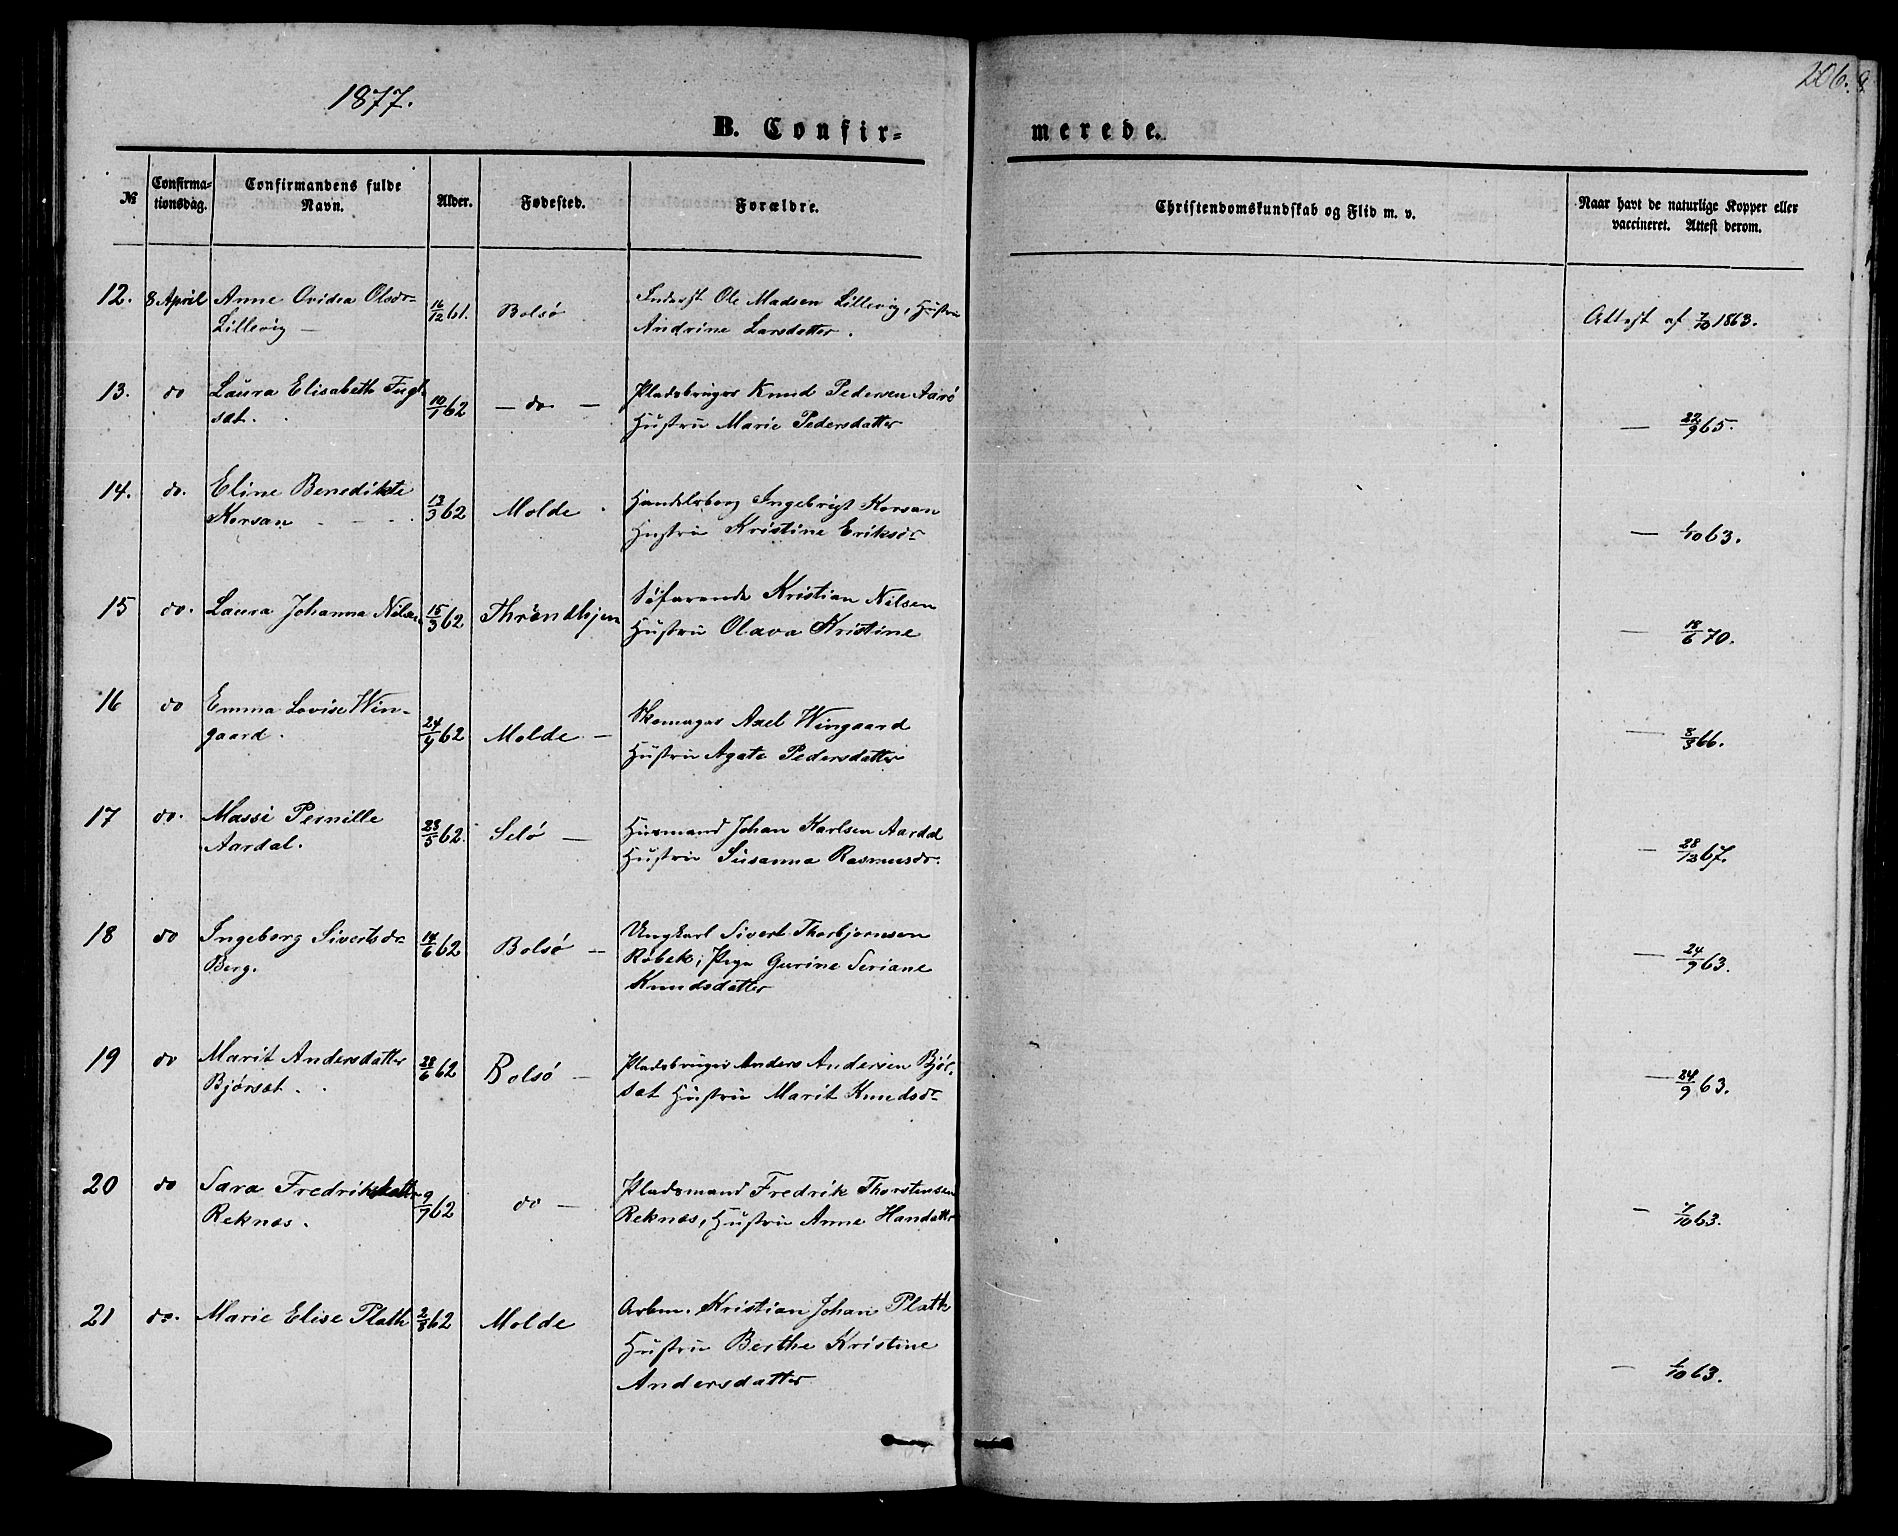 1877.
206.
B. Confir-
merede.
№
Confirma-
tionsdag.
Confirmandens fulde
Navn.
Alder.
Fødested.
Forældre.
Christendomskundskab og Flid m. v.
Naar havt de naturlige Kopper eller
vaccineret. Attest derom.
12. 8 April Anne Ovidea Olsdr 16/12 61. Bolsö Inderst Ole Madsen Lillevig, Hustru
Lillevig — Andrine Larsdatter.
Attest af 7/10 1863.
13. do Laura Elisabeth Fugl- 10/1 62 — do — Pladsbruger Knud Pedersen Aarö
sæt. Hustru Marie Pedersdatter
— 22/9 65.
14. do. Eline Benedikte 13/3 62 Molde. Handelsborg Ingebrigt Korsan
Korsan Hustru Kristine Eriksdr
— 1/10 63.
15 do. Laura Johanna Nilsen 15/3 62 Thröndhjem Söfarende Kristian Nilsen
Hustru Olava Kristine
— 18/6 70.
16 do Emma Lovise Win- 24/4 62 Molde — Skomager Axel Wingaard
gaard. Hustru Agate Pedersdatter
— 8/3 66.
17 do. Massi Pernille 23/5 62. Selö — Husmand Johan Karlsen Aardal
Aardal. Hustru Susanna Rasmusdr.
— 28/12 67.
18 do Ingeborg Sivertsdr 14/6 62 Bolsö — Ungkarl Sivert Thorbjornsen
Berg. Röbek; Pige Gurine Seriane
Knudsdatter
— 24/9 63.
19 do Marit Andersdatter 28/6 62 Bolsö — Pladsbruger Anders Andersen Bjöl-
Bjørsæt. sæt Hustru Marit Knudsdr
— 24/9 63.
20 do Sara Fredriksdatter 9/7 62 do — Pladsmand Fredrik Thorstensen
Reknæs. Reknæs, Hustru Anne Hansdatter
— 7/10 63.
21 do. Marie Elise Plath 2/8 62 Molde Arbm. Kristian Johan Plath
Hustru Berthe Kristine
Andersdatter
— 1/10 63.